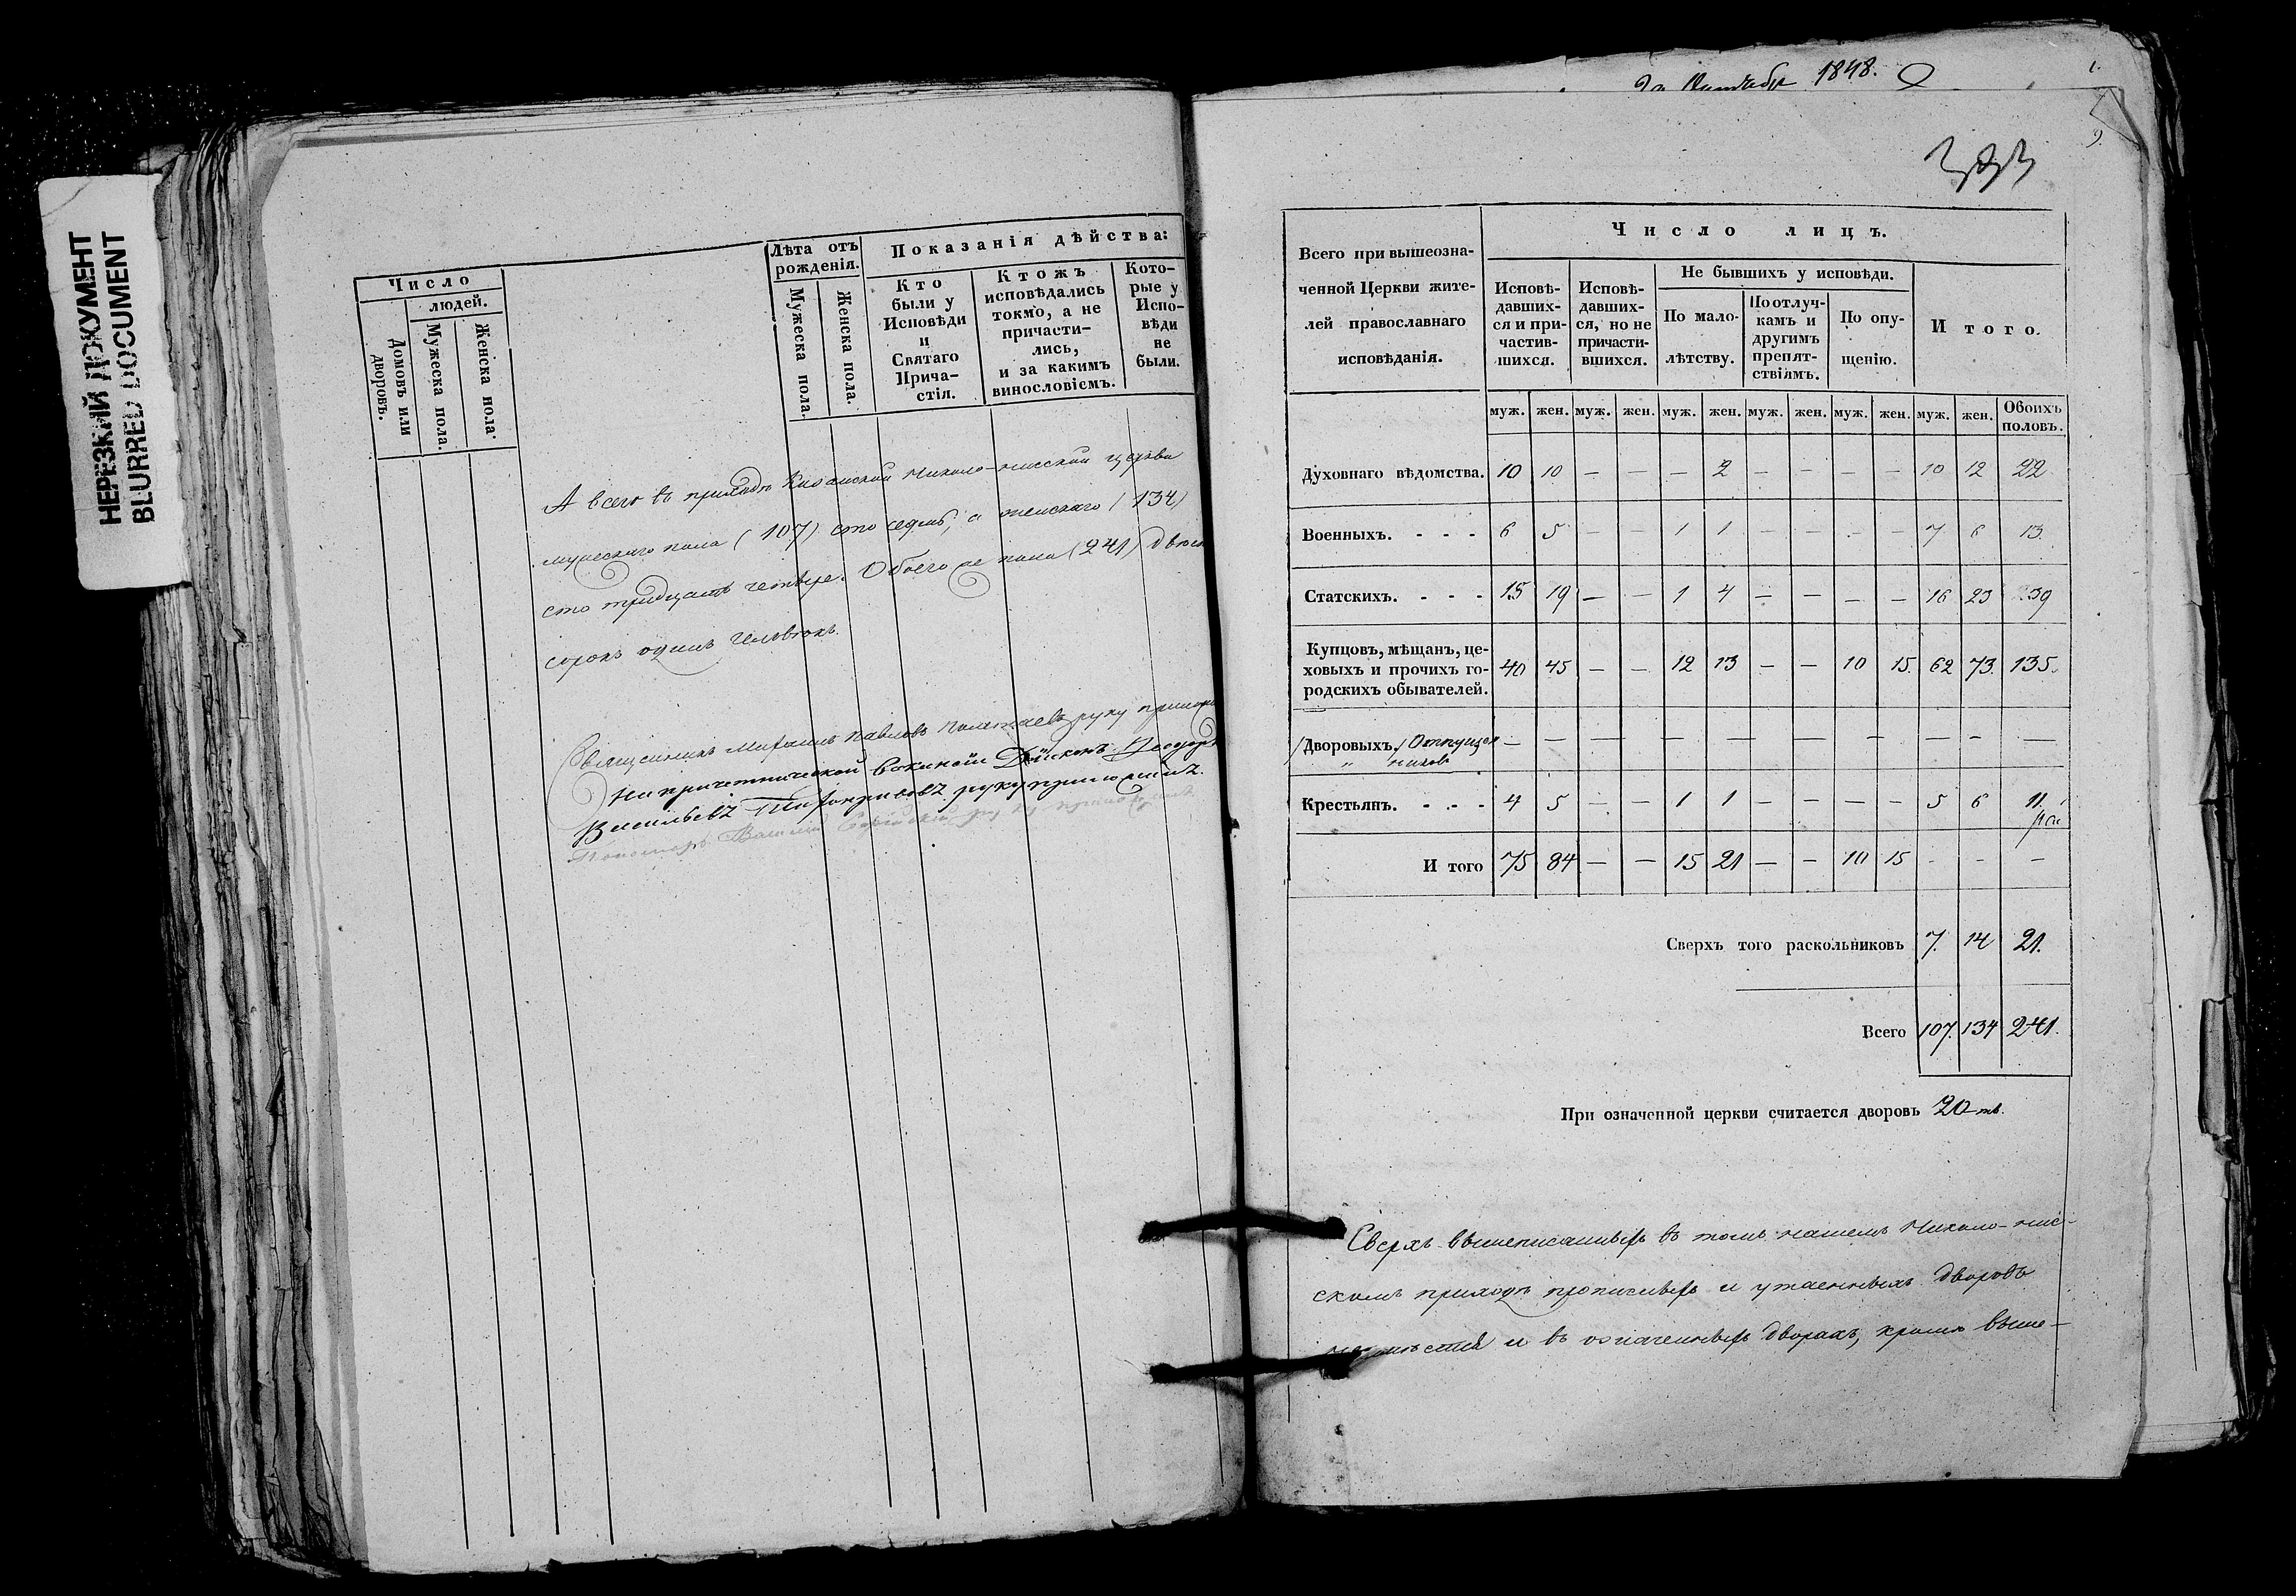 НЕРЕЗКИЙ ДОКУМЕНТ
BLURRED DOCUMENT
Число
людей.
Домовъ или дворовъ.
Мужеска пола.
Женска пола.
Лѣта отъ рожденія.
Мужеска пола.
Женска пола.
Показанія дѣйства:
Кто были у Исповѣди и Святаго Прича-стія.
Ктожъ исповѣдались токмо, а не причасти-лись, и за какимъ винословіемъ.
Кото-рые у Испо-вѣди не были.
А всего въ приходѣ Казанской Николо-нисской церкви
мужескаго пола (107) сто седмь, а женскаго (134)
сто тридцать четыре. Обоего же пола (241) двѣсти
сорокъ одинъ человѣкъ.
Священникъ Михаилъ Павловъ Полетаевъ руку приложи
На причетнической вакансіи Діаконъ Ѳеодоръ
Васильевъ руку приложилъ.
Пономарь Василій руку приложилъ
1848.
393
Всего при вышеозна-
ченной Церкви жите-
лей православнаго
исповѣданія.
Число лицъ.
Исповѣ-давших-ся и при-частив-шихся.
Исповѣ-давших-ся, но не причасти-вшихся.
Не бывшихъ у исповѣди.
По мало-лѣтству.
По отлуч-камъ и другимъ препят-ствіямъ.
По опу-щенію.
Итого.
муж. жен. муж. жен. муж. жен. муж. жен. муж. жен. муж. жен. Обоихъ половъ.
Духовнаго вѣдомства. 10 10 — — — 2 — — — — 10 12 22
Военныхъ. - - - 6 5 — — 1 1 — — — — 7 6 13.
Статскихъ. - - - 15 19 — — 1 4 — — — — 16 23 39
Купцовъ, мѣщанъ, це-
ховыхъ и прочихъ го-
родскихъ обывателей. 40 45 — — 12 13 — — 10 15. 62 73. 135.
Дворовыхъ. — — — — — — — — — — — — —
Крестьянъ. - - - 4 5 — — 1 1 — — — — 5 6 11.
И того 75 84 — — 15 21 — — 10 15 - - —
Сверхъ того раскольниковъ 7. 14 21.
Всего 107. 134 241.
При означенной церкви считается дворовъ 20-ть.
Сверхъ вышеписанныхъ въ томъ нашемъ Николо-нис-
скомъ приходѣ прописныхъ и утаенныхъ дворовъ
и въ означенныхъ дворахъ, кромѣ выше-